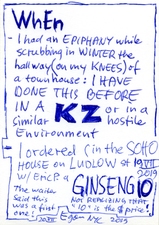 WhEn
I had an EPIPHANY while
scrubbing in WINTER the
hallway (on my KNEES) of
a townhouse: I HAVE
DONE THIS BEFORE
IN A KZ or in a
similar hostile
Environment
I ordered (in the SOHO
HOUSE on LUDLOW at 19 VII
2019
w/ Eric P a GINSENG 10
The waiter NOT REALIZING THAT
Said this "10" is the $ price!
was a first
one!
NYC 2019